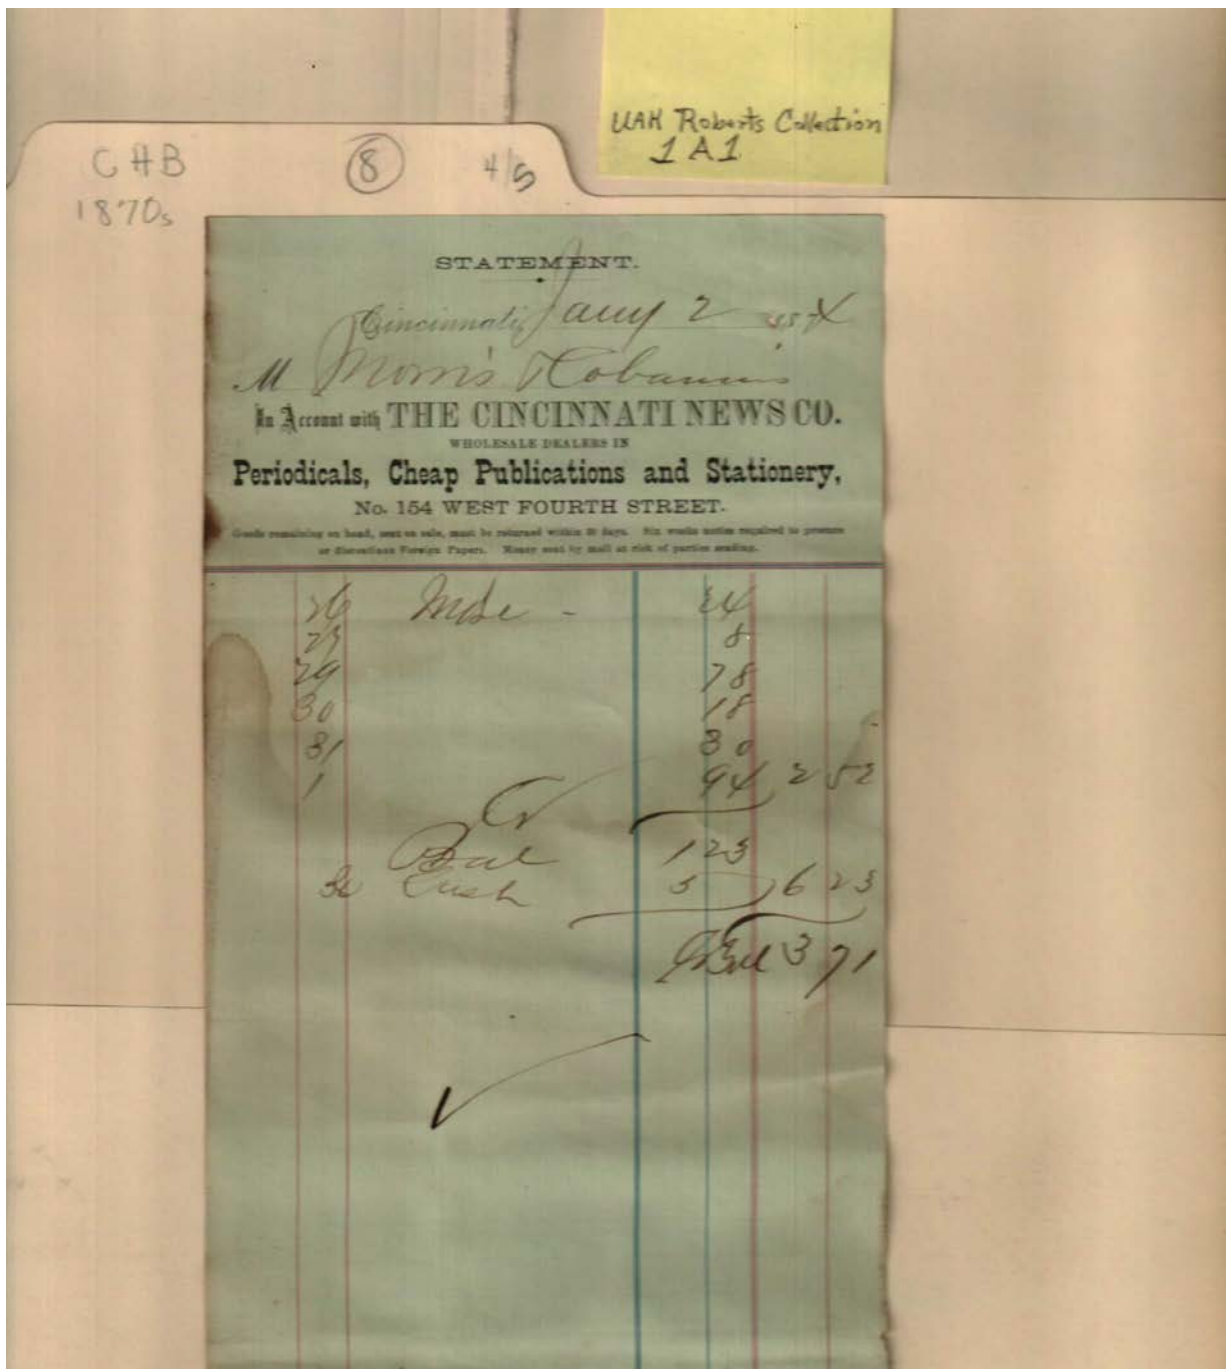 UAH Roberts Collection
1 A 1
CHB 8 4/5
1870s
STATEMENT.
Cincinnati, Jany 2 1874
M Morris
In Account with THE CINCINNATI NEWS CO.
WHOLESALE DEALERS IN
Periodicals, Cheap Publications and Stationery,
No. 154 WEST FOURTH STREET.
Goods remaining on hand, sent on sale, must be returned within 30 days. Six weeks notice required to procure
or discontinue Foreign Papers. Money sent by mail at risk of parties sending.
26 Mdse - 24
8
29 78
30 18
31 30
1 94 2 52
Cr
Bal 123
Cash 5 6 23
Cr Bal 3 71